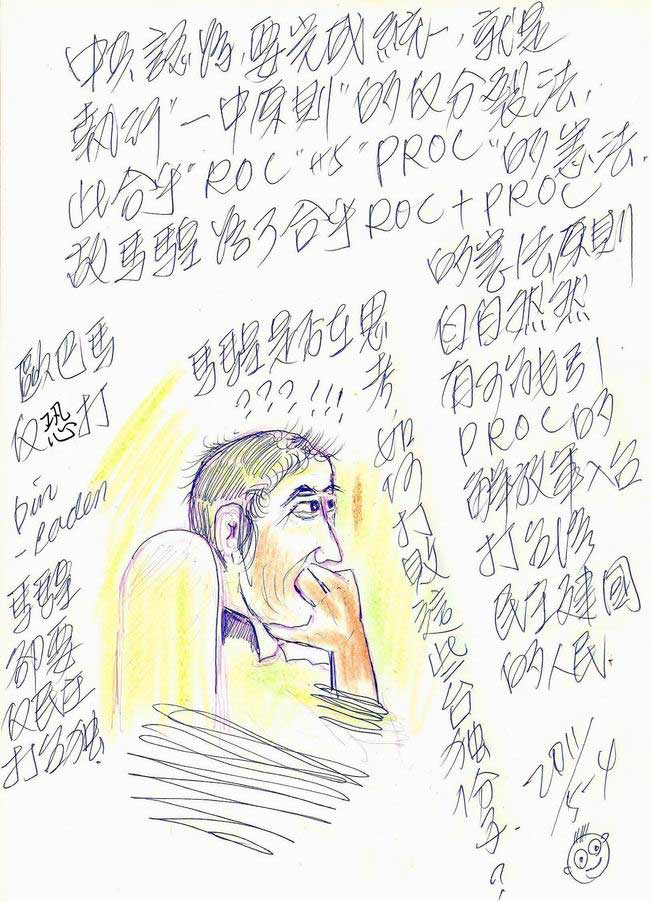 中共認為,要完成統一,就是
執行"一中原則"的反分裂法.
此合乎"ROC"與"PROC"的憲法.
故馬騜為了合乎ROC+PROC
的憲法原則
自自然然
有可能引
PROC的
解放軍入台
打台灣
民主建國
的人民.
馬騜是否在思
考,如何打敗這些台獨份子?
???!!!
歐巴馬
反恐打
bin
-eaden
馬騜
卻要
反民主
打台獨
2011/
5-4